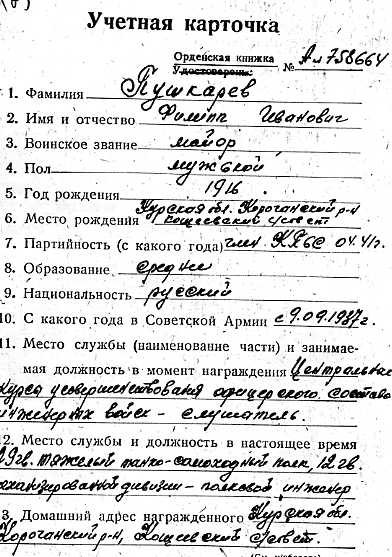 Учетная карточка
Орденская книжка
Удостоверень: № Ал 758664
1. Фамилия Пушкарев
2. Имя и отчество Филипп Иванович
3. Воинское звание майор
4. Пол мужской
5. Год рождения 1916
Курская обл. Корочанский р-н
6. Место рождения Кощеевский с/совет
7. Партийность (с какого года) член КПСС 04.41г.
8. Образование среднее
9. Национальность русский
10. С какого года в Советской Армии с 9.09.1937г.
11. Место службы (наименование части) и занимае-
мая должность в момент награждения Центральные
курсы усовершенствования офицерского состава
инженерных войск - слушатель.
2. Место службы и должность в настоящее время
тяжелый танко-самоходный полк, 12 гв.
механизированной дивизии - полковой инженер
3. Домашний адрес награжденного Курская обл.
Корочанский р-н, Кощеевский с/совет.